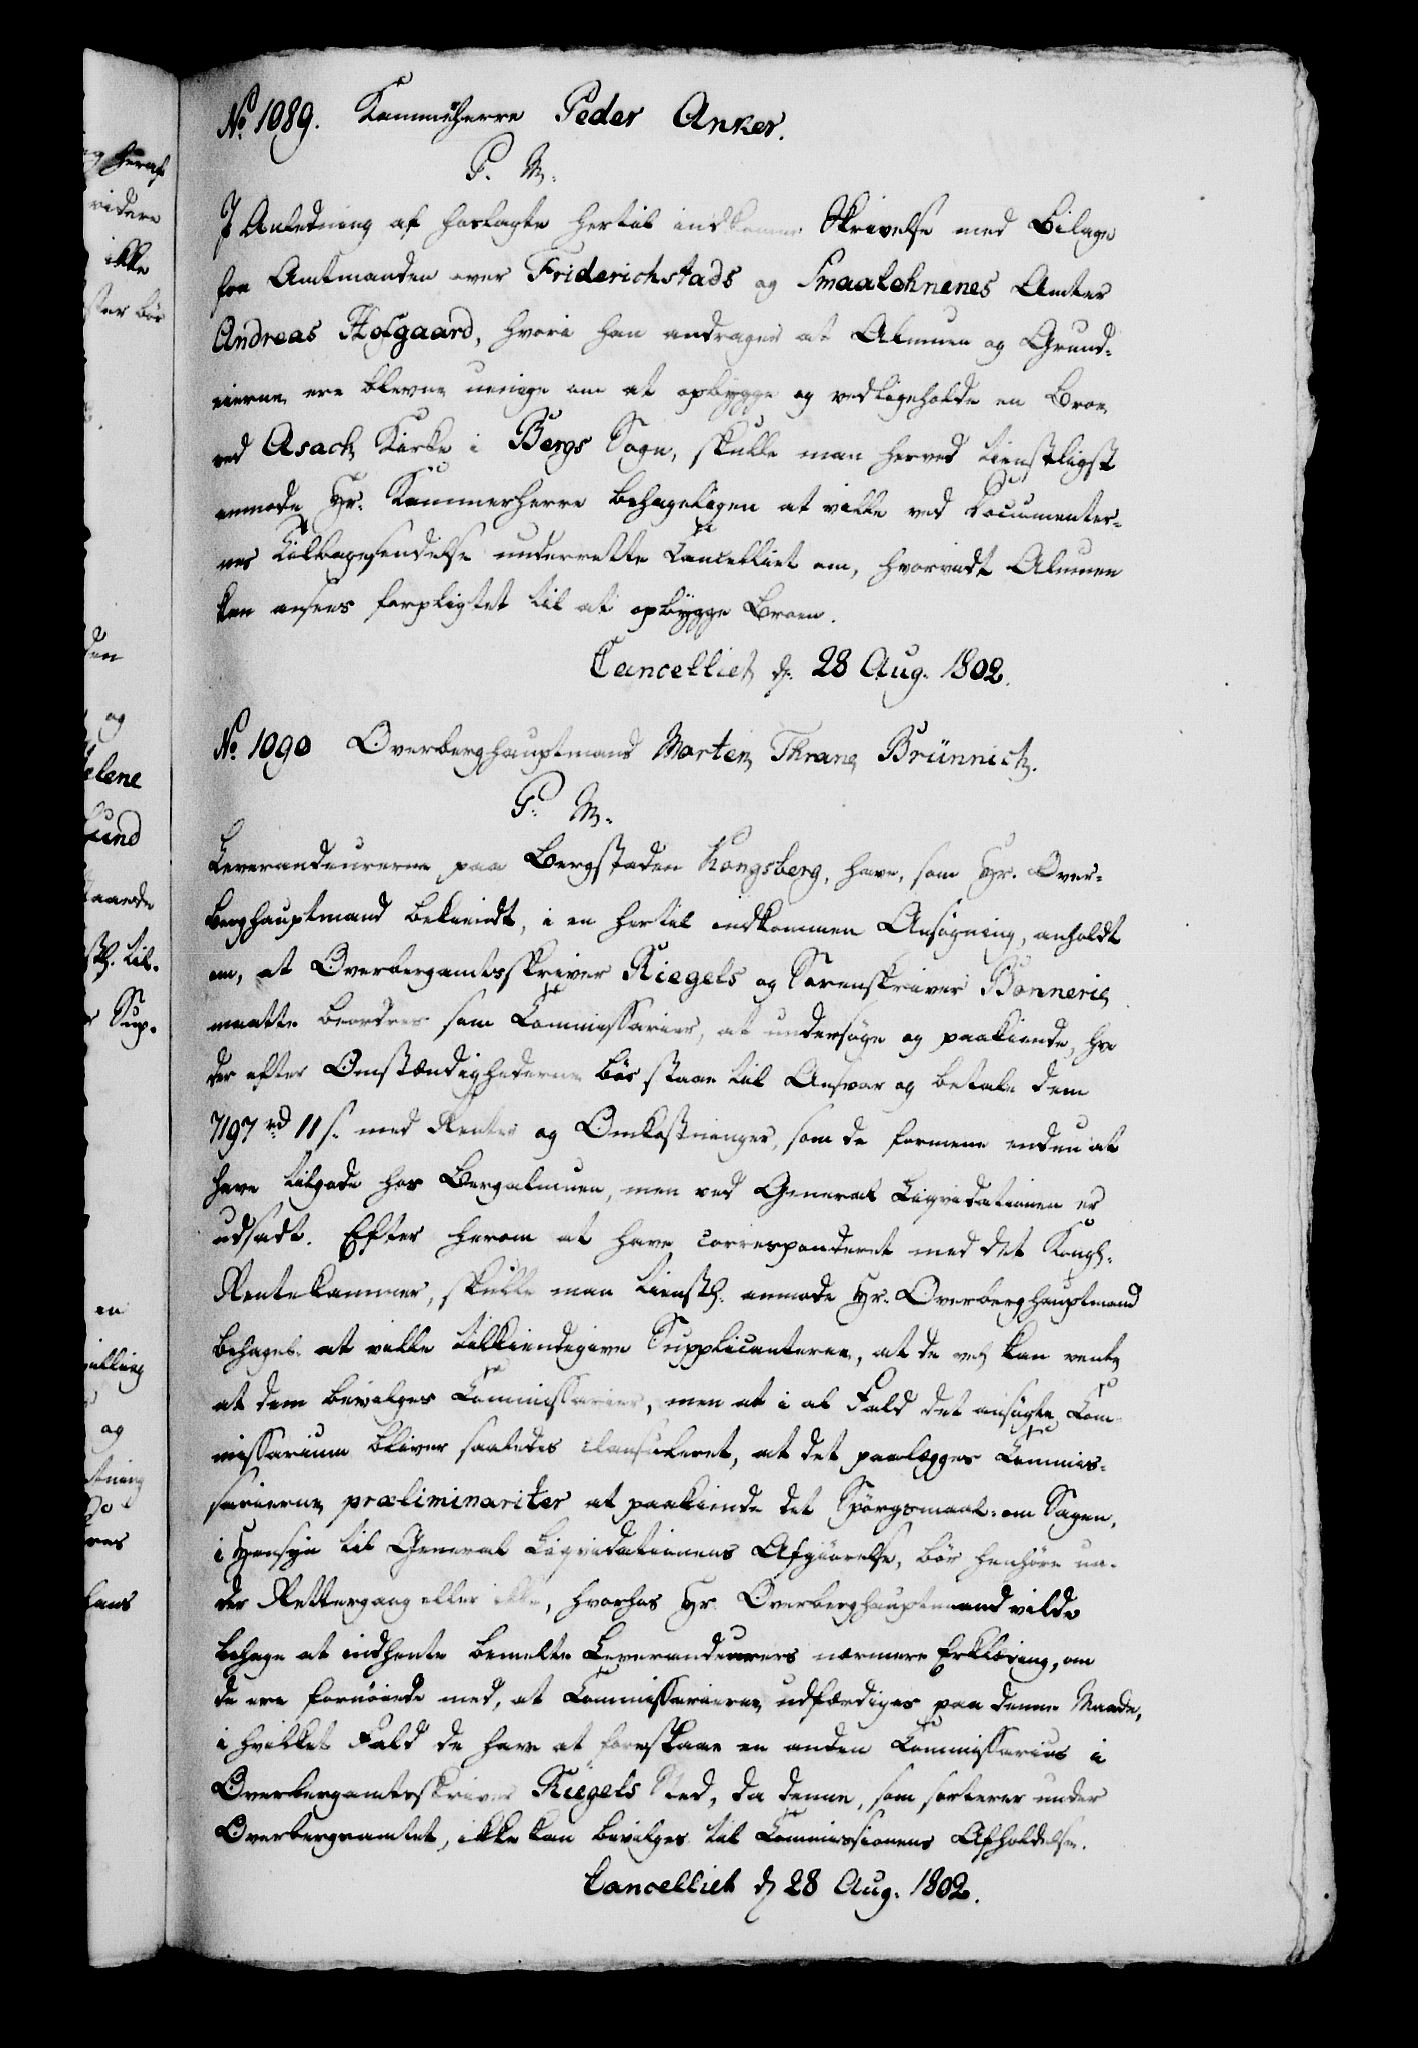 No. 1089. Kammerherre Peder Anker.
P. M.
I Anledning af hoslagte hertil indkomne Skrivelse med Bilage
fra Amtmanden over Friderichstads og Smaalehnenes Amter
Andreas Hofgaard, hvori han andrager at Almuen og Grund-
eierne ere blevne uenige om at opbygge og vedligeholde en Broe
ved Asach Kirke i Bergs Sogn, skulle man herved tienstligst
anmode Hr. Kammerherre behageligen at ville ved Documenter-
nes Tilbagesendelse underrette Cancelliet om, hvorvidt Almuen
kan ansees forpligtet til at opbygge Broen.
Cancelliet d. 28 Aug. 1802.
No. 1090 Overberghauptmand Morten Thrane Brünnich.
P. M.
Leverandeurerne paa Bergstaden Kongsberg, have, som Hr. Over-
berghauptmand bekiendt, i en hertil indkommen Ansøgning, anholdt
om, at Overbergamtsskriver Riegels og Sorenskriver Bonnevie
maatte beordres som Commissarier, at undersøge og paakiende, hvo
der efter Omstændighederne bör staae til Ansvar og betale dem
7197 rd 11 s. med Renter og Omkostninger, som de formene endnu at
have tilgode hos Bergalmuen, men ved General Liqvidationen er
udsadt. Efter herom at have correspondert med det Kongl.
Rentekammer, skulle man tienstl. anmode Hr. Overberghauptmand
behagel. at ville tilkiendegive Supplicanterne, at de vel kan vente
at dem bevilges Commissarier, men at i al Fald det ansögte Com-
missarium bliver saaledes clausuleret, at det paalægges Commis-
sarierne præliminariter at paakiende det Spörgsmaal: om Sagen,
i Hensyn til General Liqvidationens Afgiörelse, bör henhöre un-
der Rettergang eller ikke, hvorhos Hr. Overberghauptmand vilde
behage at indhente bemelte Leverandeurers nærmere Erklæring, om
de ere fornöiede med, at Commissarierne udfærdiges paa denne Maade,
i hvilket Fald de have at foreslaae en anden Commissarius i
Overbergamtsskriver Riegels Sted, da denne, som sorterer under
Overbergamtet, ikke kan bevilges til Commissionens Afholdelse.
Cancelliet d. 28 Aug. 1802.